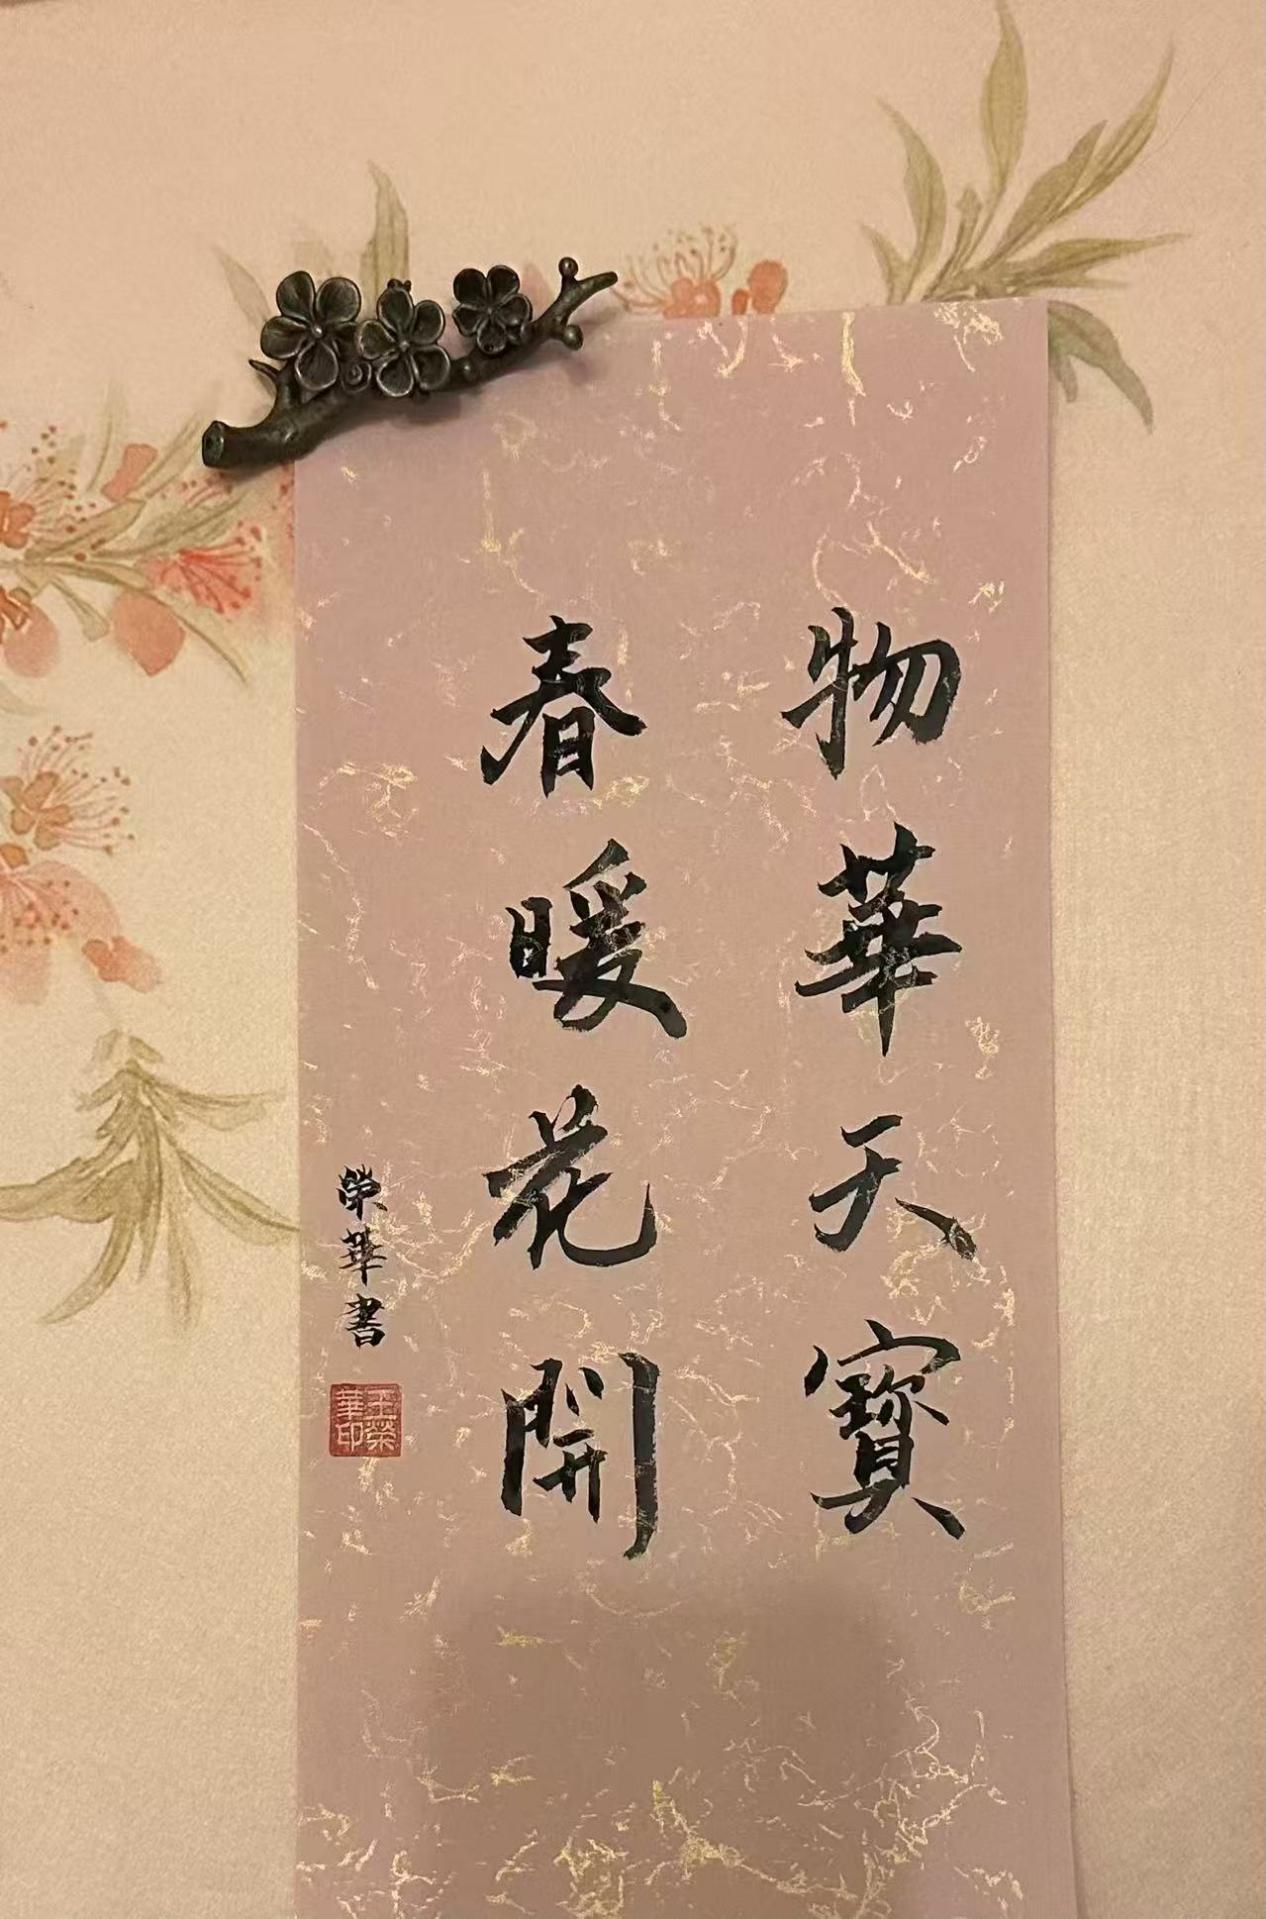 物華天寶
春暖花開
榮華書
王榮華印